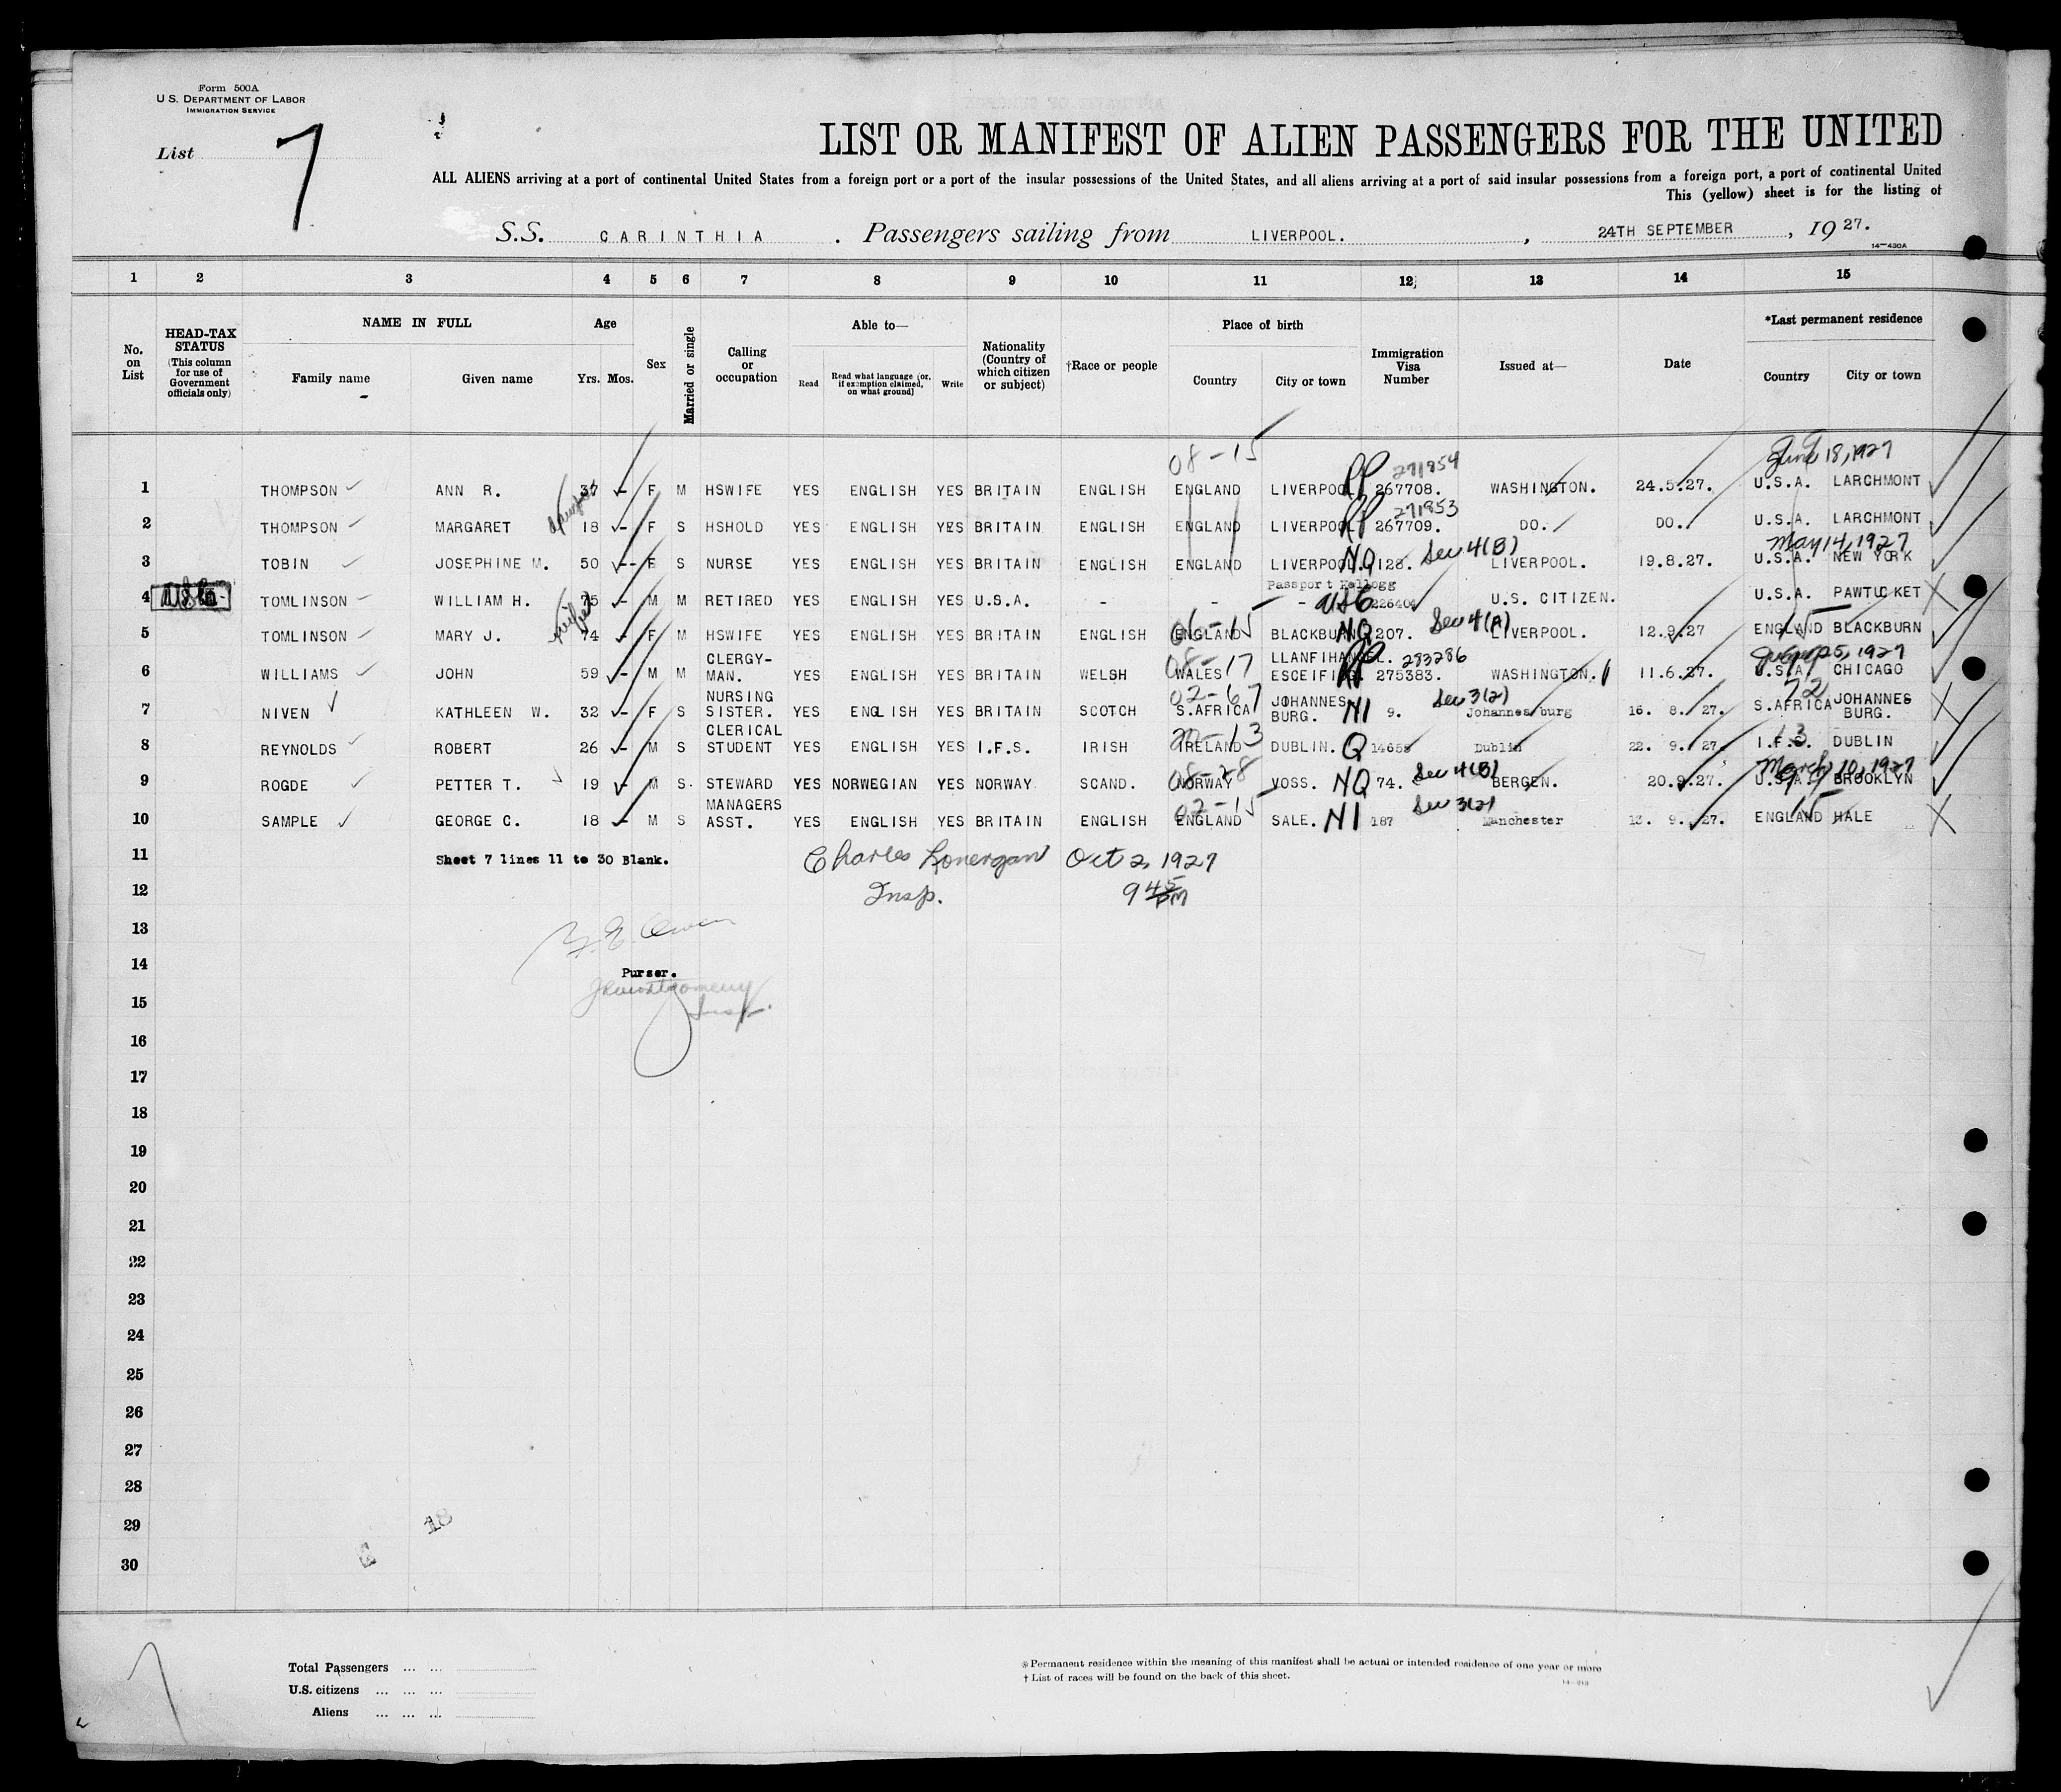 Form 500A
U.S. DEPARTMENT OF LABOR
IMMIGRATION SERVICE
List 7
LIST OR MANIFEST OF ALIEN PASSENGERS FOR THE UNITED
ALL ALIENS arriving at a port of continental United States from a foreign port or a port of the insular possessions of the United States, and all aliens arriving at a port of said insular possessions from a foreign port, a port of continental United
This (yellow) sheet is for the listing of
S.S. CARINTHIA . Passengers sailing from LIVERPOOL. , 24TH SEPTEMBER , 19 27.
14—430A
1 2 3 4 5 6 7 8 9 10 11 12 13 14 15
No. on List
HEAD-TAX STATUS (This column for use of Government officials only)
NAME IN FULL Family name Given name
Age Yrs. Mos.
Sex
Married or single
Calling or occupation
Able to— Read Read what language (or, if exemption claimed, on what ground) Write
Nationality (Country of which citizen or subject)
†Race or people
Place of birth Country City or town
Immigration Visa Number
Issued at—
Date
*Last permanent residence Country City or town
08-15 271954 June 18, 1927
1 THOMPSON ANN R. 37 - F M HSWIFE YES ENGLISH YES BRITAIN ENGLISH ENGLAND LIVERPOOL PP 267708. WASHINGTON. 24.5.27. U.S.A. LARCHMONT
271953
2 THOMPSON MARGARET 18 - F S HSHOLD YES ENGLISH YES BRITAIN ENGLISH ENGLAND LIVERPOOL PP 267709. DO. DO. U.S.A. LARCHMONT
Sec 4(B) May 14, 1927
3 TOBIN JOSEPHINE M. 50 -- F S NURSE YES ENGLISH YES BRITAIN ENGLISH ENGLAND LIVERPOOL NQ 128. LIVERPOOL. 19.8.27. U.S.A. NEW YORK
Passport Kellogg
4 TOMLINSON WILLIAM H. 75 - M M RETIRED YES ENGLISH YES U.S.A. - - - USC 226404 U.S. CITIZEN. U.S.A. PAWTUCKET
wife 06-15 Sec 4(A) 15
5 TOMLINSON MARY J. 74 - F M HSWIFE YES ENGLISH YES BRITAIN ENGLISH ENGLAND BLACKBURN NQ 207. LIVERPOOL. 12.9.27 ENGLAND BLACKBURN
08-17 283286
6 WILLIAMS JOHN 59 - M M CLERGY-MAN. YES ENGLISH YES BRITAIN WELSH WALES LLANFIHANGEL. PP 275383. WASHINGTON. 11.6.27. U.S.A. CHICAGO
02-67 Sec 3(2) 72
7 NIVEN KATHLEEN W. 32 - F S NURSING SISTER. YES ENGLISH YES BRITAIN SCOTCH S.AFRICA JOHANNESBURG. NI 9. Johannesburg 16. 8. 27. S.AFRICA JOHANNESBURG.
13
8 REYNOLDS ROBERT 26 - M S CLERICAL STUDENT YES ENGLISH YES I.F.S. IRISH IRELAND DUBLIN. Q 14655 Dublin 22. 9. 27. I.F.S. DUBLIN
08-28 Sec 4(B) March 10, 1927
9 ROGDE PETTER T. 19 - M S. STEWARD YES NORWEGIAN YES NORWAY SCAND. NORWAY VOSS. NQ 74. BERGEN. 20.9.27. U.S.A. BROOKLYN
02-15 Sec 3(2) 15
10 SAMPLE GEORGE C. 18 - M S MANAGERS ASST. YES ENGLISH YES BRITAIN ENGLISH ENGLAND SALE. NI 187 Manchester 13. 9. 27. ENGLAND HALE
11 Sheet 7 lines 11 to 30 Blank. Charles Lonergan Oct 2, 1927
12 Insp. 9 45 PM
13 Owen
14 Purser.
15 JR Montgomery Insp.
16
17
18
19
20
21
22
23
24
25
26
27
28
29 18
30
Total Passengers ... ...
U.S. citizens ... ... ...
Aliens ... ... ...
*Permanent residence within the meaning of this manifest shall be actual or intended residence of one year or more
† List of races will be found on the back of this sheet.